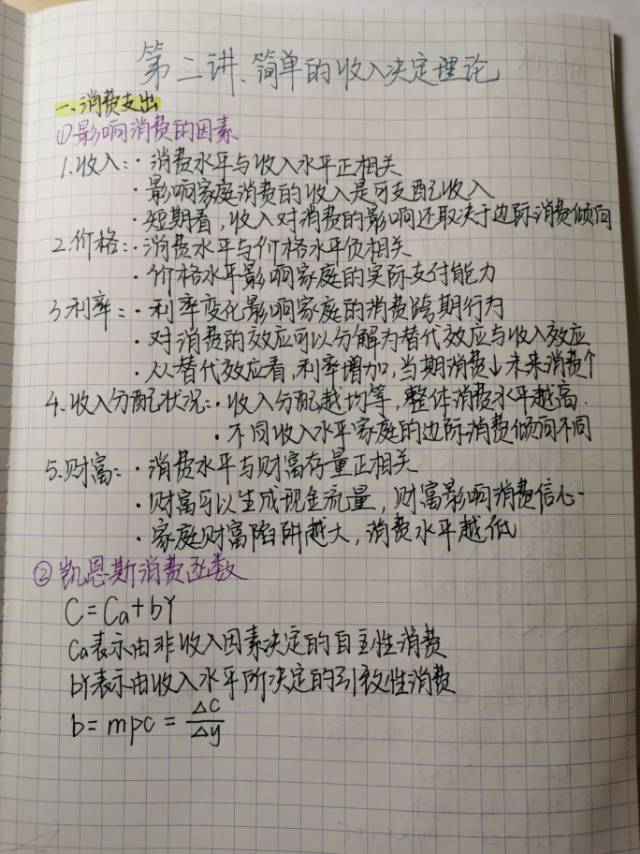 第二讲、简单的收入决定理论
一、消费支出
①影响消费的因素
1.收入:·消费水平与收入水平正相关
·影响家庭消费的收入是可支配收入
·短期看,收入对消费的影响还取决于边际消费倾向
2.价格:·消费水平与价格水平负相关
·价格水平影响家庭的实际支付能力
3.利率:·利率变化影响家庭的消费跨期行为
·对消费的效应可以分解为替代效应与收入效应
·从替代效应看,利率增加,当期消费↓未来消费↑
4.收入分配状况:·收入分配越均等,整体消费水平越高.
·不同收入水平家庭的边际消费倾向不同
5.财富:·消费水平与财富存量正相关
·财富可以生成现金流量,财富影响消费信心
·家庭财富陷阱越大,消费水平越低
②凯恩斯消费函数
C=Ca+bY
Ca表示由非收入因素决定的自主性消费
bY表示由收入水平所决定的引致性消费
b=mpc=△c/△y